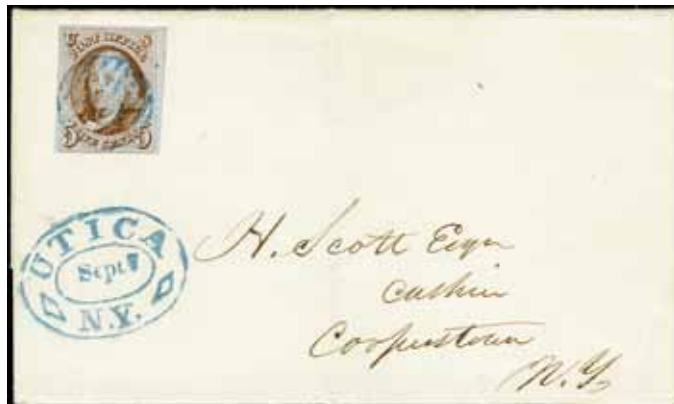 POST OFFICE
5 FIVE CENTS 5
UTICA
Sept 7
N.Y.
H. Scott Esqr
Cashier
Cooperstown
N.Y.